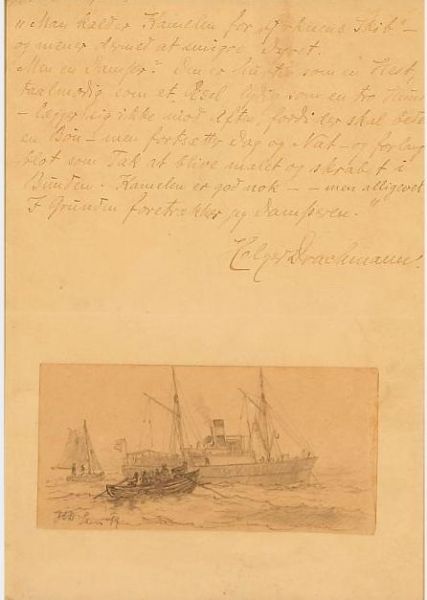 "Man kalder Kamelen for Ørkenens Skib" –
og mener dermed at smigre Dyret.
Men en Damper? Den er hurtig som en Hest,
taalmodig som et Æsel, lydig som en tro Hund
– lægger sig ikke mod Aften, fordi der skal
en Bøn – men fortsætter Dag og Nat – og forlang
blot som Tak at blive malet og skrabet i
Bunden. Kamelen er god nok – – men alligevel
I Grunden foretrækker jeg Damperen."
Holger Drachmann.
HD